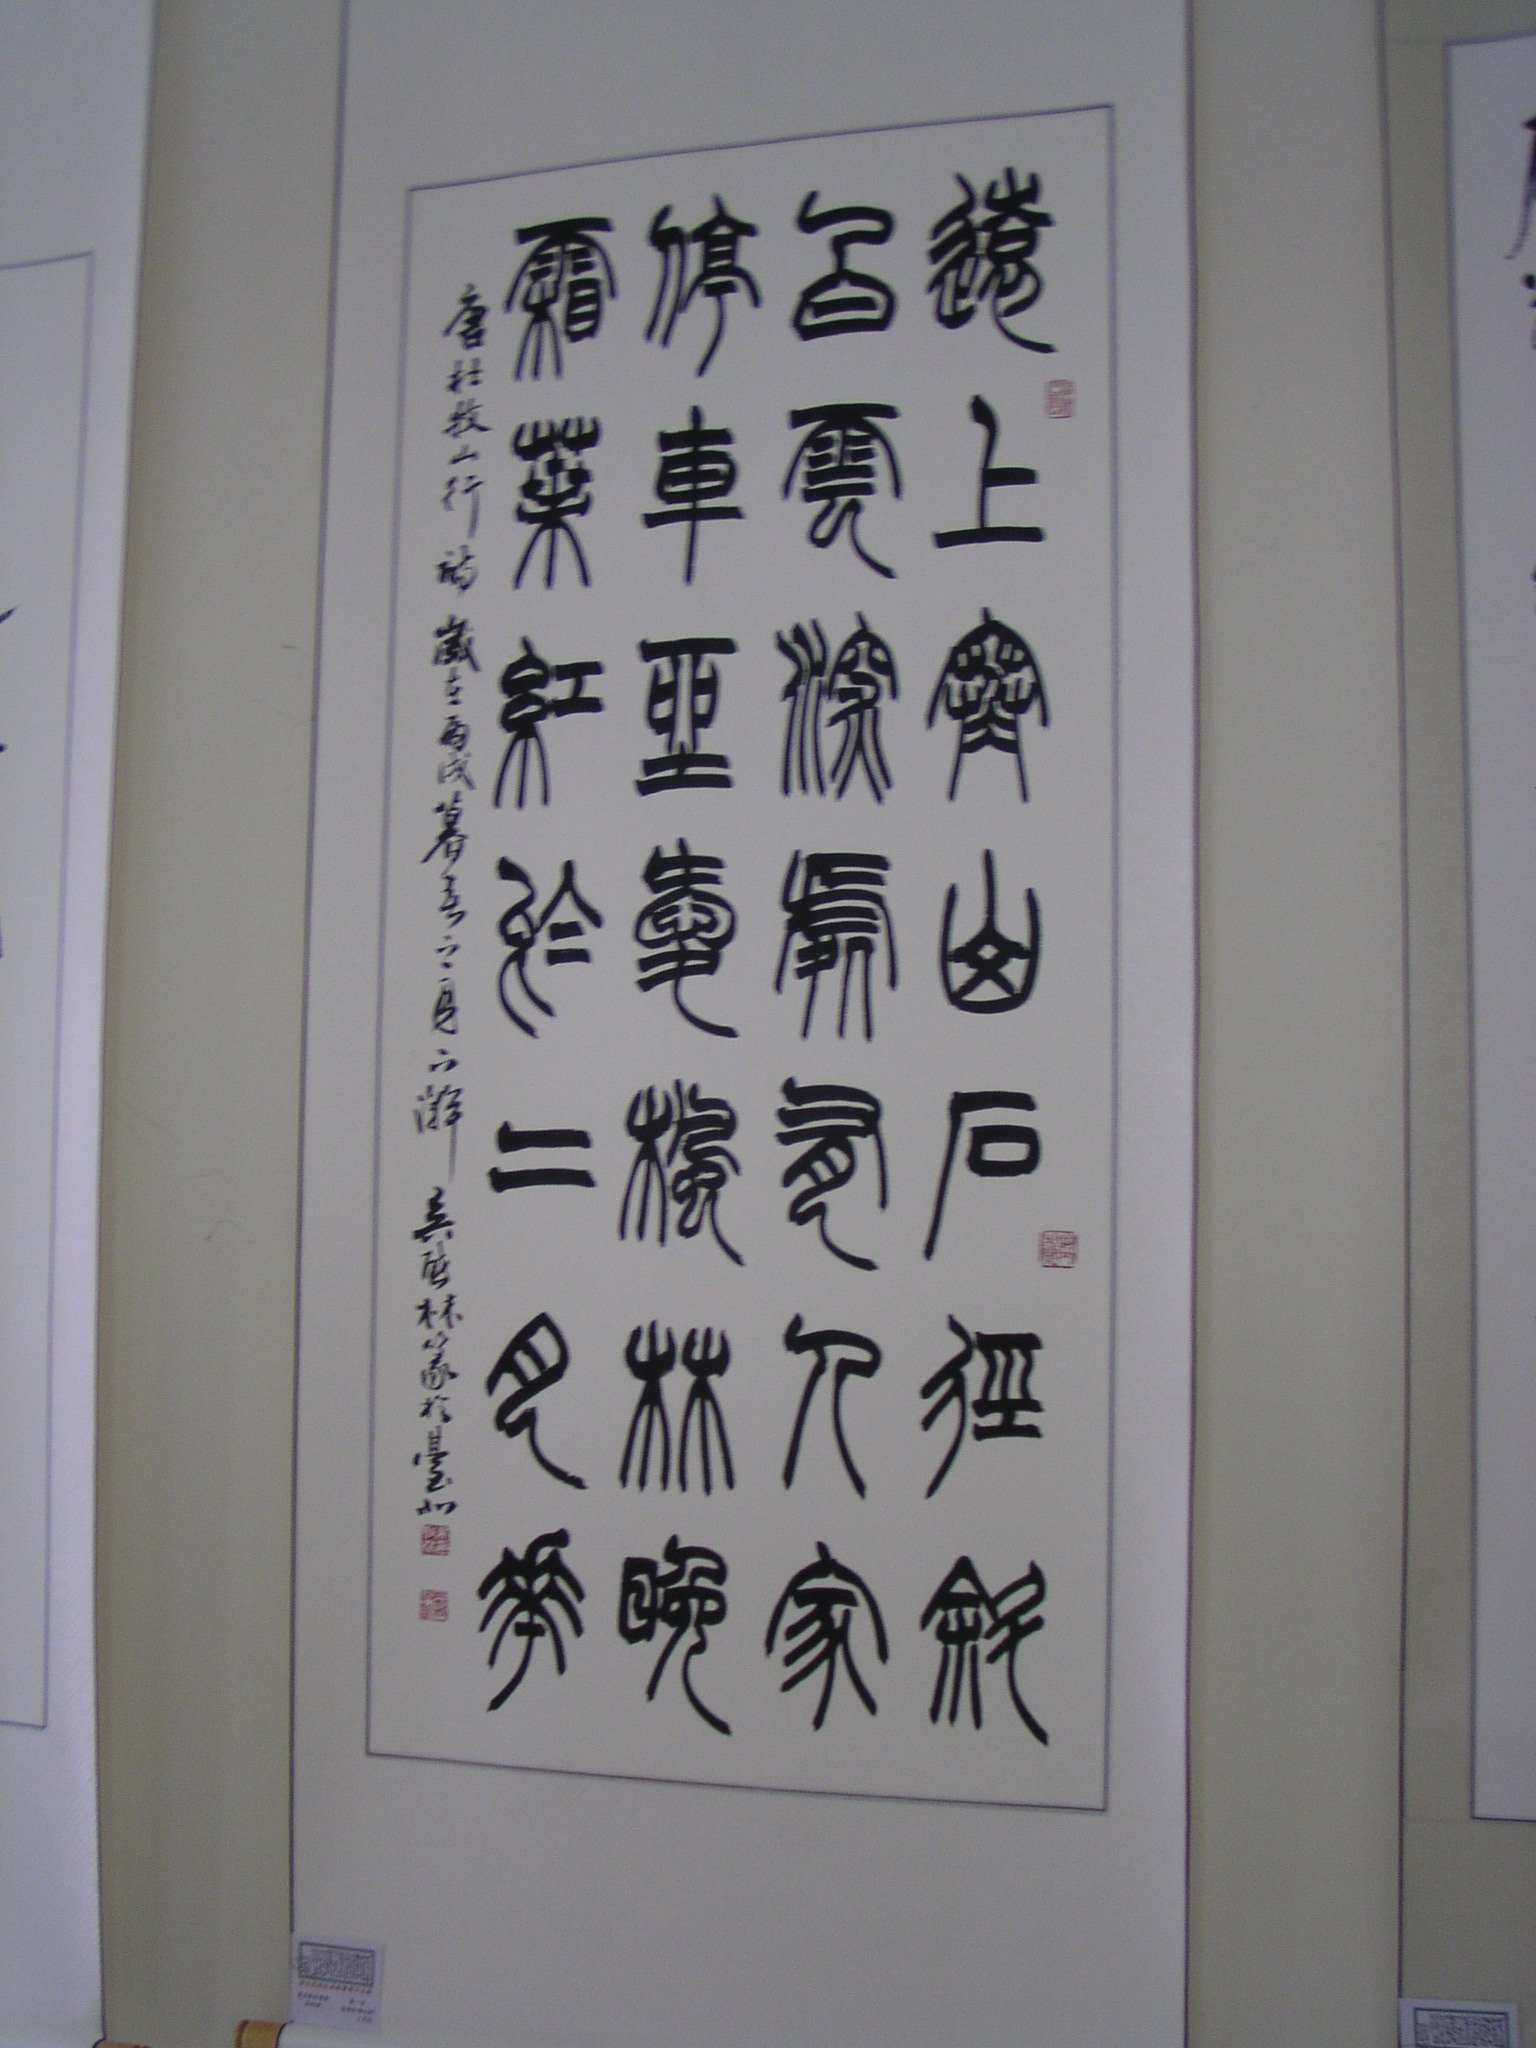 遠上寒山石徑斜
白雲深處有人家
停車坐愛楓林晚
霜葉紅於二月華
唐杜牧山行詩 歲在丙戌暮春之月下澣 吳林篆於臺北